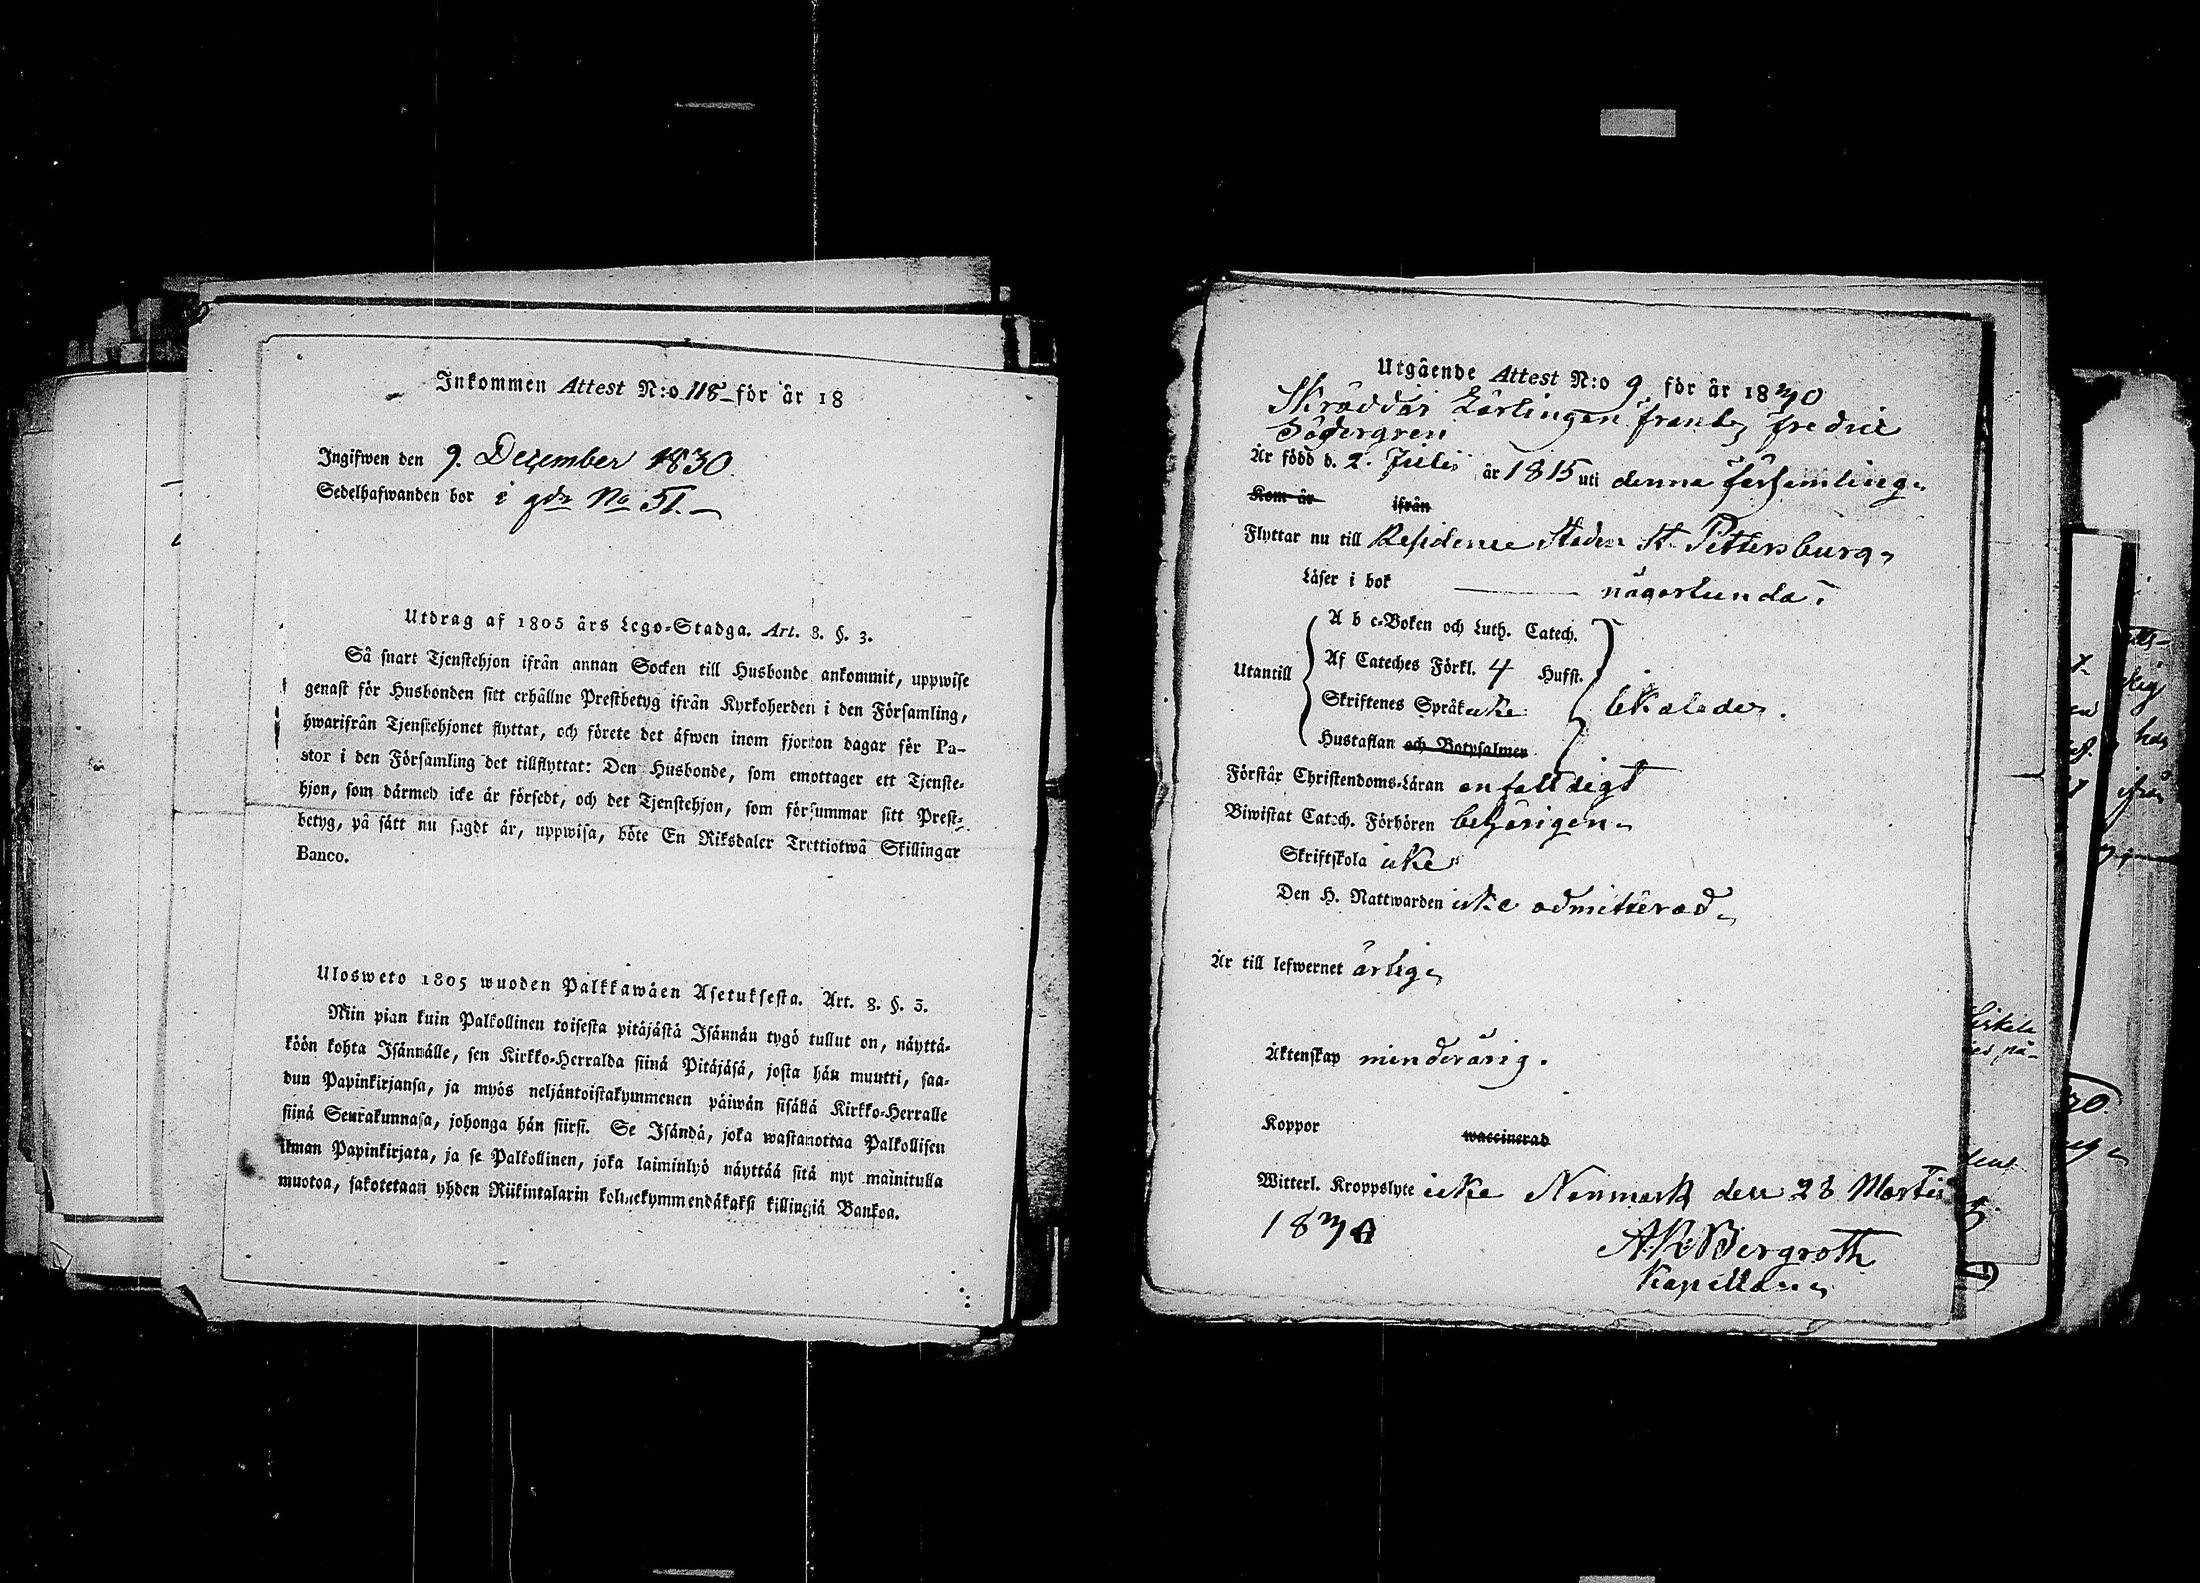 Inkommen Attest N:o 118 för år 18
Ingifwen den 9. December 1830.
Sedelhafwanden bor i gdn No 51.
Utdrag af 1805 års Lego-Stadga. Art. 8. §. 3.
Så snart Tjenstehjon ifrån annan Socken till Husbonde ankommit, uppwise
genast för Husbonden sitt erhållne Prestbetyg ifrån Kyrkoherden i den Församling,
hwarifrån Tjenstehjonet flyttat, och förete det äfwen inom fjorton dagar för Pa-
stor i den Församling det tillflyttat: Den Husbonde, som emottager ett Tjenste-
hjon, som därmed icke är försedt, och det Tjenstehjon, som försummar sitt Prest-
betyg, på sätt nu sagdt är, uppwisa, böte En Riksdaler Trettiotwå Skillingar
Banco.
Ulosweto 1805 wuoden Palkkawäen Asetuksesta. Art. 8. §. 3.
Niin pian kuin Palkollinen toisesta pitäjästä Isännän tygö tullut on, näyttä-
köön kohta Isännälle, sen Kirkko-Herralda siinä Pitäjäsä, josta hän muutti, saa-
dun Papinkirjansa, ja myös neljäntoistakymmenen päiwän sisällä Kirkko-Herralle
siinä Seurakunnasa, johonga hän siirsi. Se Isändä, joka wastanottaa Palkollisen
ilman Papinkirjata, ja se Palkollinen, joka laiminlyö näyttää sitä nyt mainitulla
muotoa, sakotetaan yhden Riikintalarin kolmekymmendäkaksi killingiä Bankoa.
Utgående Attest N:o 9 för år 1830
Skräddar Lärlingen Frantz Fredric
Södergren
Är född d. 2. Julii år 1815 uti denna församling
Kom år ifrån
Flyttar nu till Residence Staden St. Pettersburg
Läser i bok någorlunda
A b c-Boken och Luth. Catech.
Utantill Af Cateches Förkl. 4 Hufst.
Skriftenes Språk icke
Hustaflan och Botpsalmen
Förstår Christendoms-Läran enfaldigt
Biwistat Catech. Förhören behörigen
Skriftskola icke
Den H. Nattwarden icke admitterad
Är till lefwernet ärlig
Äktenskap minderårig.
Koppor waccinerad
Witterl. Kroppslyte icke Nummark den 23 Martii
1830
A. R. Bergroth
Kapellan